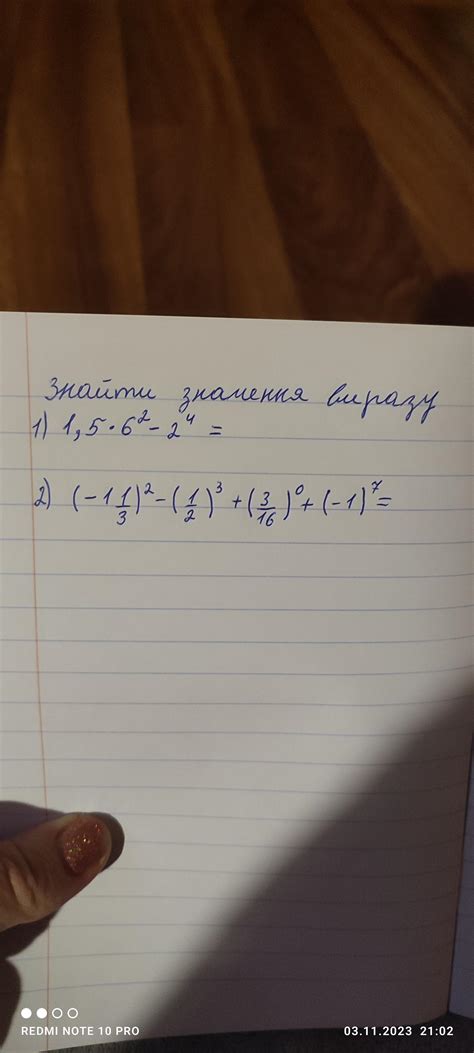 Знайти значення виразу
1) 1,5·6²-2⁴=
2) (-1 1/3)²-(1/2)³+(3/16)⁰+(-1)⁷=
REDMI NOTE 10 PRO
03.11.2023 21:02